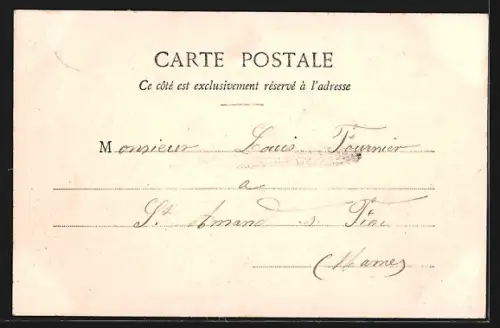 CARTE POSTALE
Ce côté est exclusivement réservé à l'adresse
Monsieur Louis Fournier
a
St. Amand s. Fion
(Marne)